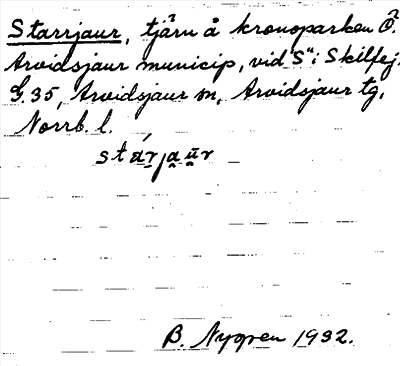 Starrjaur, tjärn å kronoparken Ö.
Arvidsjaur municip, vid "S" i Skilfej.
G. 35, Arvidsjaur sn, Arvidsjaur tg,
Norrb. l.
stárjau̯r
B. Nygren 1932.